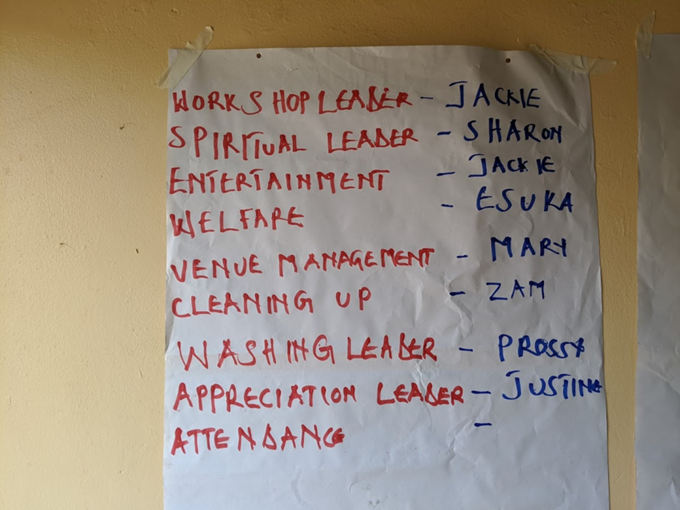 WORKSHOP LEADER - JACKIE
SPIRITUAL LEADER - SHARON
ENTERTAINMENT - JACKIE
WELFARE - ESUKA
VENUE MANAGEMENT - MARY
CLEANING UP - ZAM
WASHING LEADER - PROSSY
APPRECIATION LEADER - JUSTINE
ATTENDANCE -